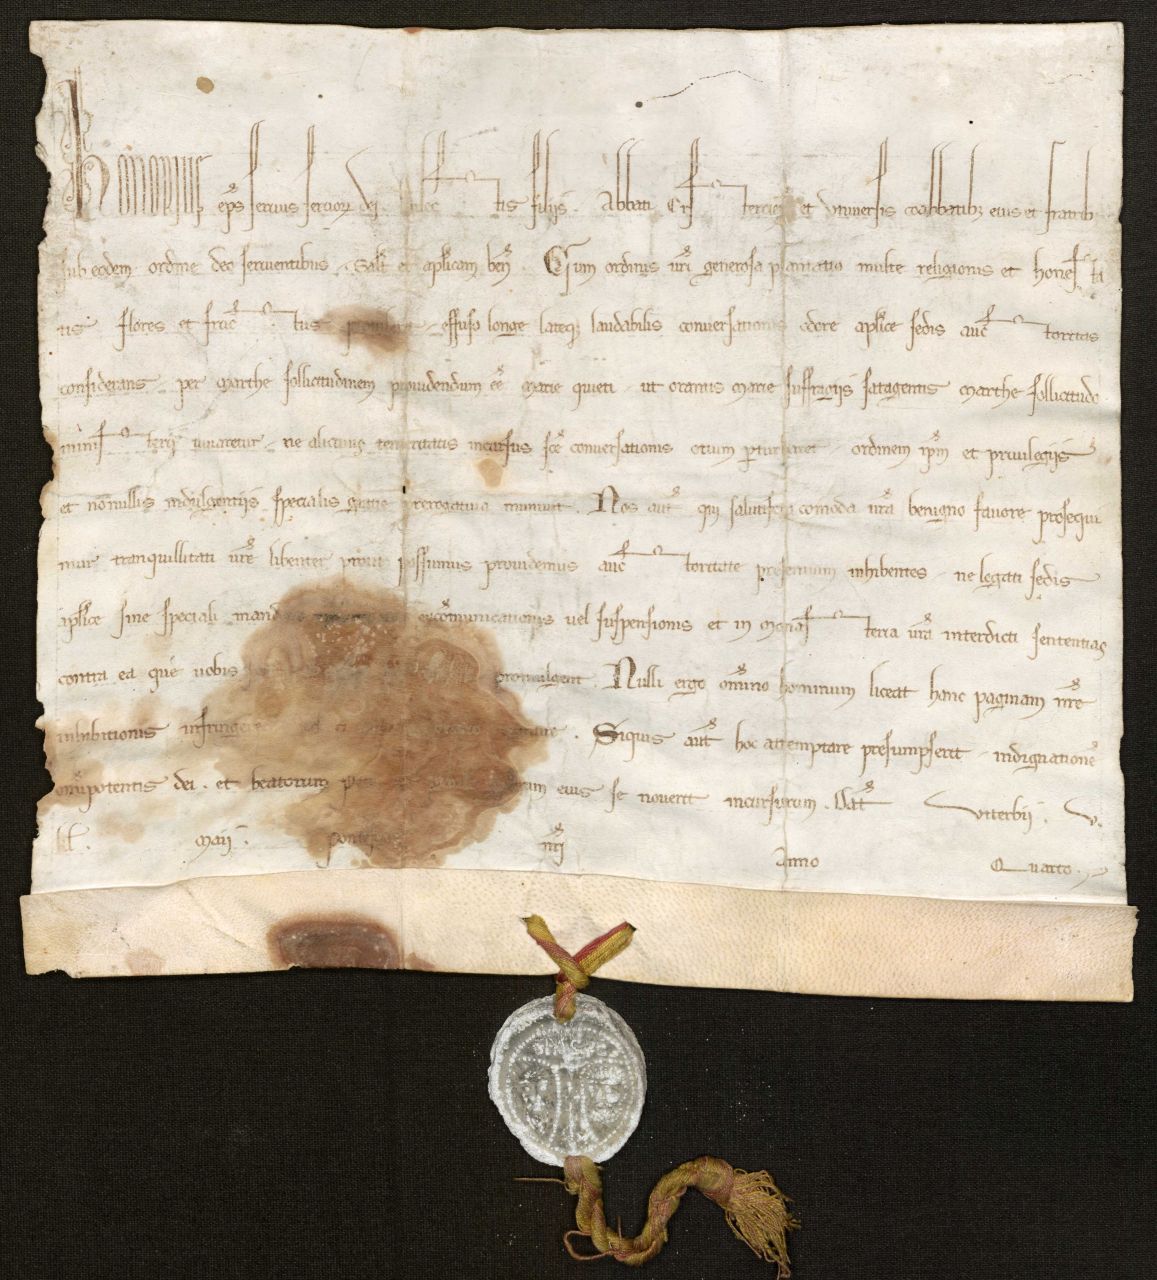 honorius eps servus servor dei tis filiis. Abbati Cis tercien et universis coabbatibz eius et fratrib
sub eodem ordine deo servientibus. Salt et aplicam ben. Cum ordinis vri generosa plantatio multe religionis et honesta
tis flores et fructus effuso longe lateqz laudabilis conversationis odore aplice sedis auctoritas
considerans per marthe sollicitudinem providendum ee marie quieti ut oratus marie suffragiis satagentis marthe sollicitudo
ministerii iuvaretur ne alicuius temeritatis incursus sce conversationis otium pturbaret ordinem ipm et privilegiis
et nonullis indulgentiis specialis gratie prerogativa munivit. Nos aut qui salutifera comoda vra benigno favore prosequi
mur tranquillitati vre libenter prout possumus providemus auctoritate presentium inhibentes ne legati sedis
aplice sine speciali excomunicationis vel suspensionis et in monasteria vra interdicti sententias
contra ea que vobis promulgent. Nulli ergo omino hominum liceat hanc paginam nre
inhibitionis infringere. Siquis aut hoc attemptare presumpserit indignatione
omipotentis dei. et beatorum eius se noverit incursurum. Dat Viterbii. v.
kl. maii. pontificatus nri Anno Quarto.